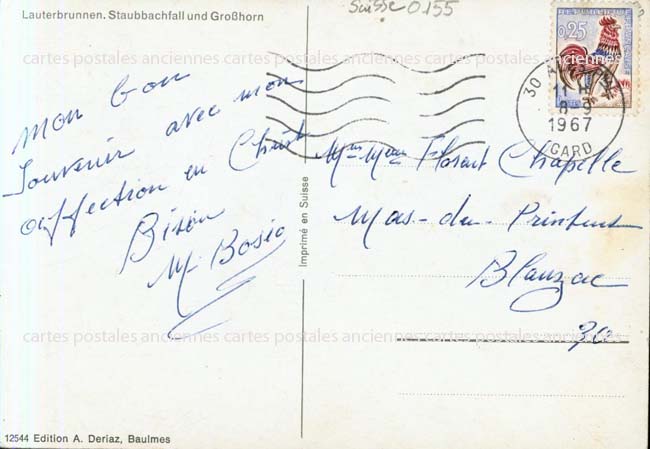 Lauterbrunnen. Staubbachfall und Großhorn
Suisse 0155
0,25
30
11 H
8-9
1967
GARD
cartes postales anciennes cartes postales anciennes cartes postales anciennes
mon bon
souvenir avec mon
affection en Christ
M. Bosio
Imprimé en Suisse
Florent Chapelle
Mas-du-Printemps
Blauzac
30
cartes postales anciennes cartes postales anciennes cartes postales anciennes
12544 Edition A. Deriaz, Baulmes